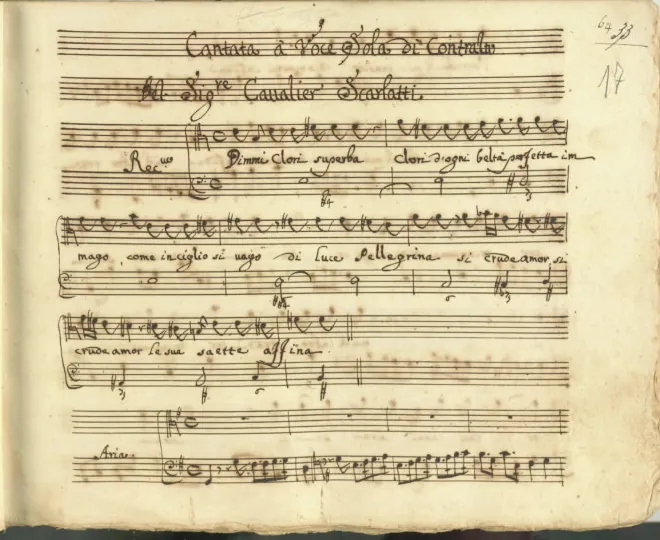 64 33
17
Cantata à Voce Sola di Contralto
Del Sigre Cavalier Scarlatti
Recvo Dimmi Clori superba Clori d'ogni beltà perfetta im
#4 3
mago, come in ciglio sì vago di luce Pellegrina si crude amor, si
#4 6 3
crude amor le sue saette affina
3 6
Aria